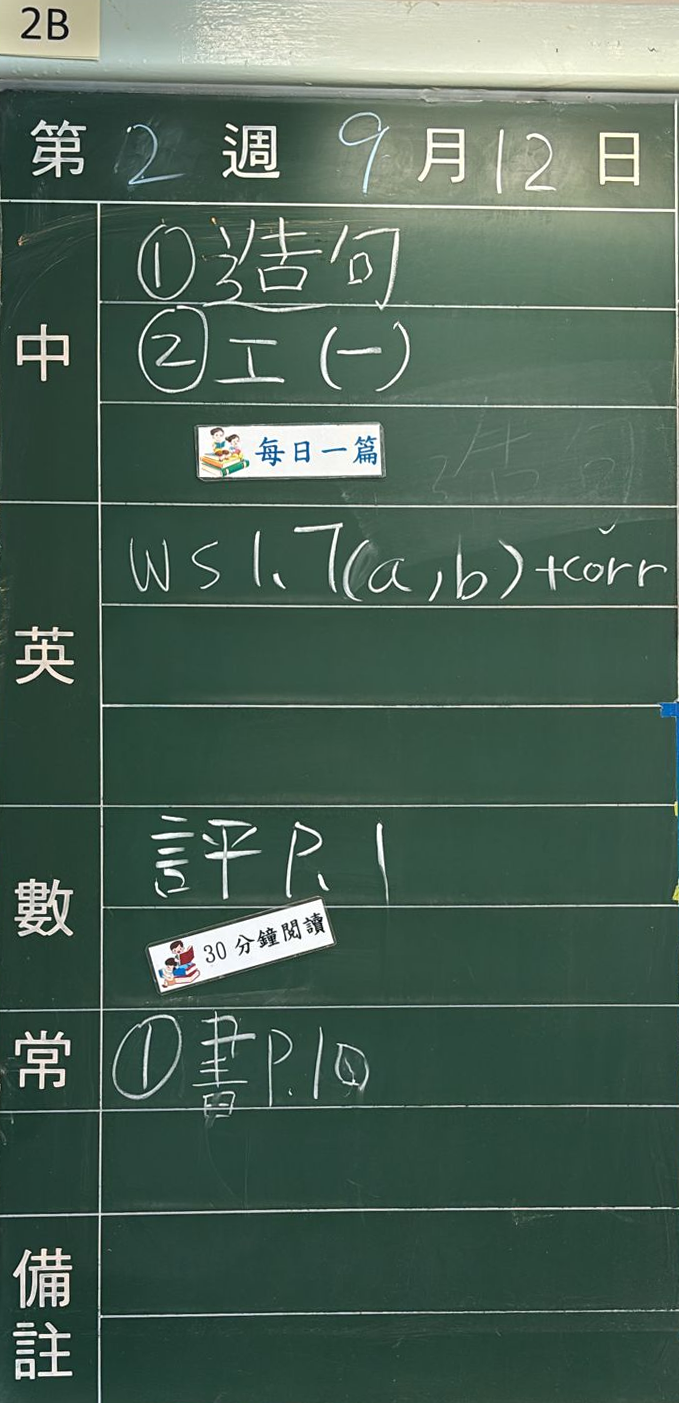 2B
第 2 週 9 月 12 日
中
①造句
②工(一)
每日一篇
英
WS 1.7(a,b)+corr
數
評 P.1
30分鐘閱讀
常
①書P.10
備註